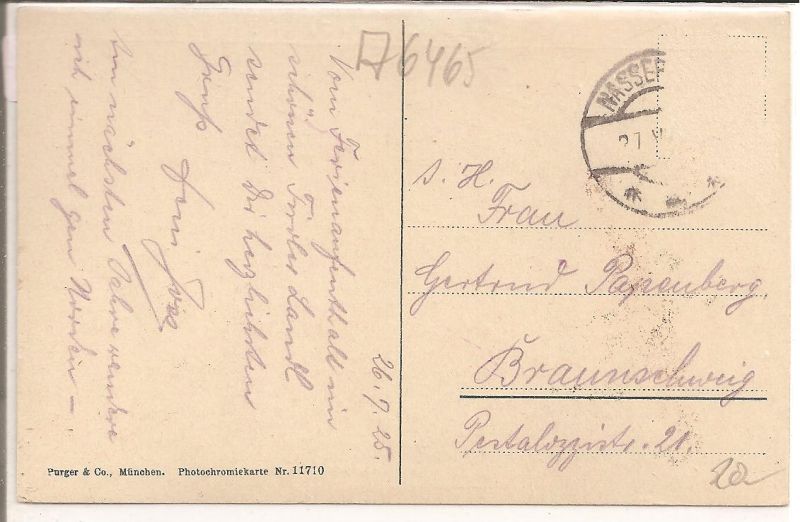 A6465
26.7.25.
Vom Ferienaufenthalt im
schönen Tiroler Landl
sendet Dir herzlichsten
Gruß
Im nächsten Jahre wendere
ich einmal gen Norden –
NASSE
27. V
S. H.
Frau
Gertrud Papenberg,
Braunschweig
Pestalozzistr. 21.
20
Purger & Co., München. Photochromiekarte Nr. 11710